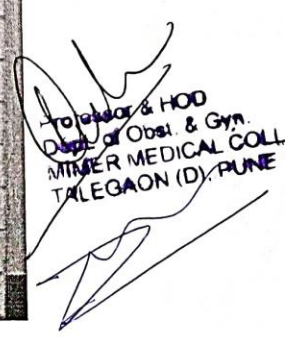 Professor & HOD
Dept. of Obst. & Gyn.
MIMER MEDICAL COLL.
TALEGAON (D), PUNE